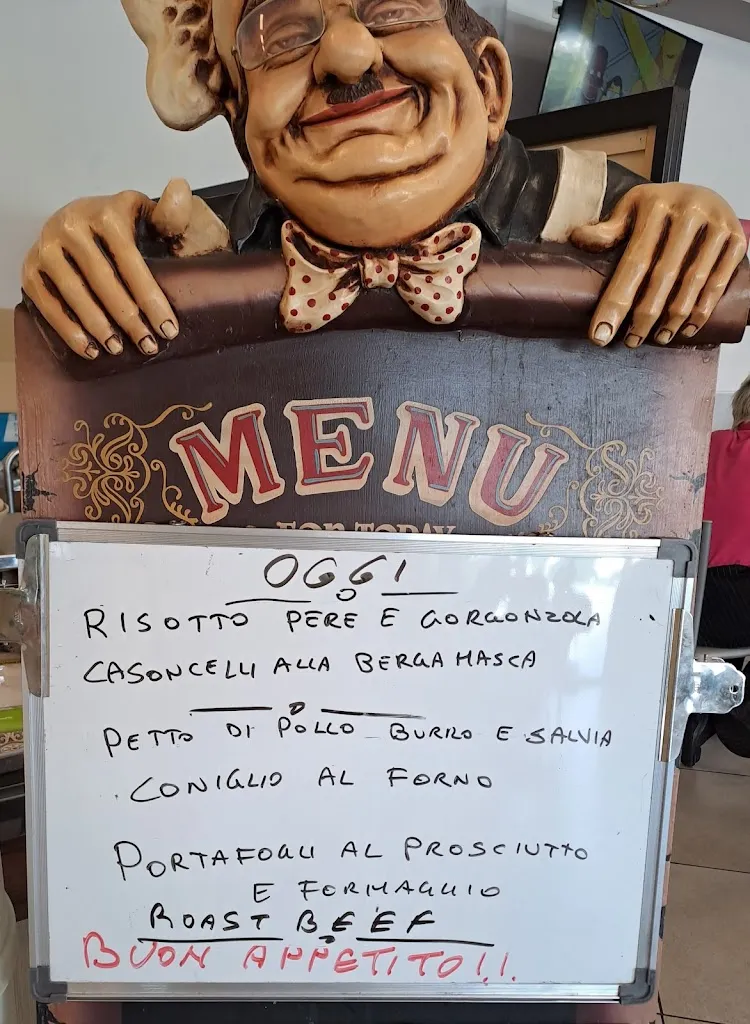 MENU
FOR TODAY
OGGI
RISOTTO PERE E GORGONZOLA
CASONCELLI ALLA BERGAMASCA
PETTO DI POLLO BURRO E SALVIA
CONIGLIO AL FORNO
PORTAFOGLI AL PROSCIUTTO
E FORMAGGIO
ROAST BEEF
BUON APPETITO!!